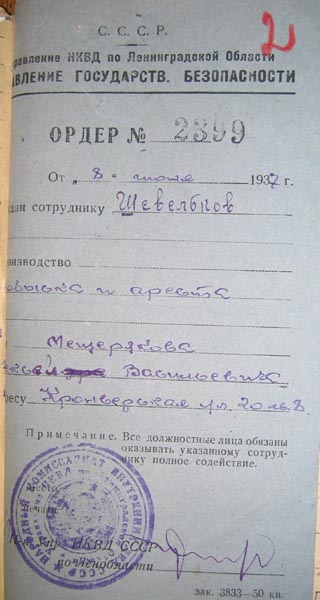 2
С. С. С. Р.
правление НКВД по Ленинградской Области
АВЛЕНИЕ ГОСУДАРСТВ. БЕЗОПАСНОСТИ
ОРДЕР № 2399
От „ 8 “ 1937 г.
дан сотруднику Шевельков
роизводство
обыска и ареста
Мещерякова
Васильевича
ресу Кронверкская ул. 20 кв 8.
Примечание. Все должностные лица обязаны
оказывать указанному сотруд-
нику полное содействие.
НКВД СССР
по Ленобласти
зак. 3833—50 кн.